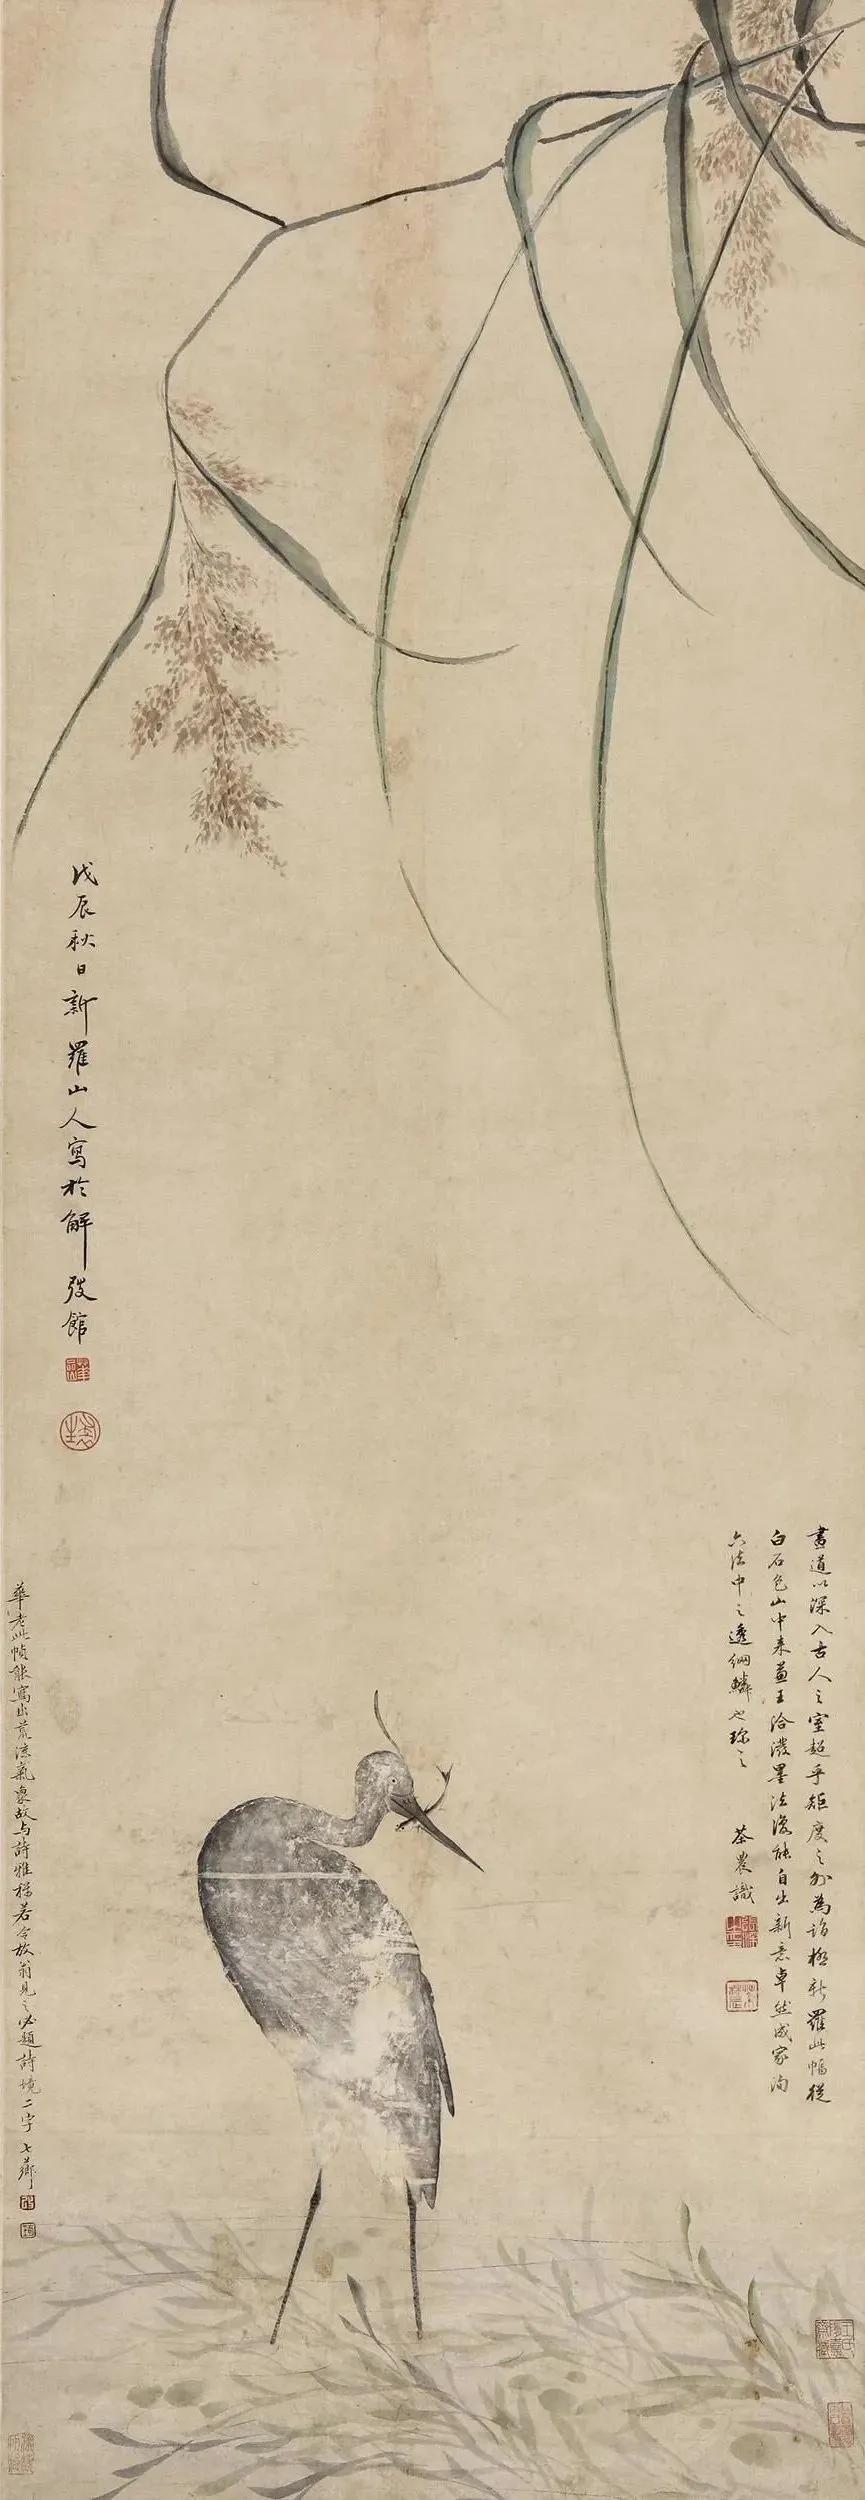 戊辰秋日新羅山人寫於解弢館
畫道以深入古人之室超乎矩度之外為詣極新羅此幅從
白石色山中來蓋王洽潑墨法後能自出新意卓然成家洵
六法中之透網鱗也珍之
茶農識
華老此幀能寫出荒涼氣象故与詩雅稱若令放翁見之必題詩境二字 七薌